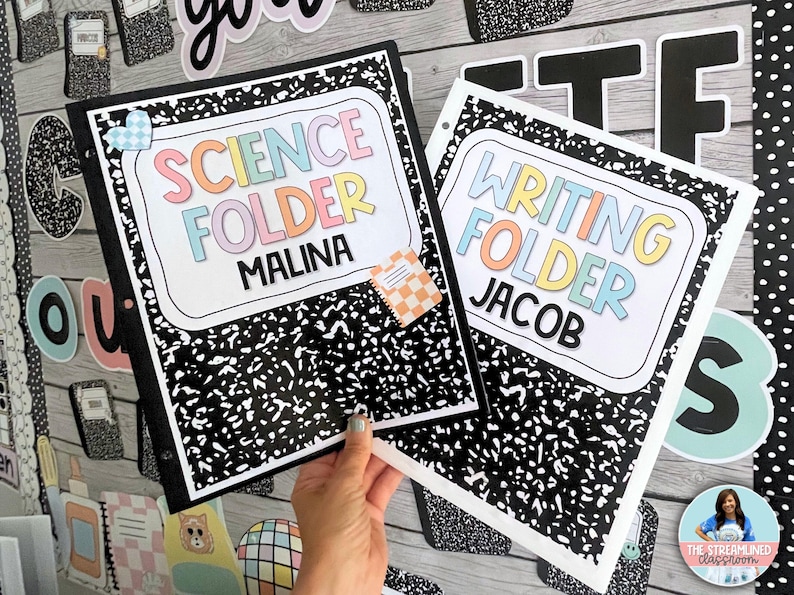 you
MARCUS
SCIENCE
FOLDER
MALINA
WRITING
FOLDER
JACOB
THE STREAMLINED
classroom